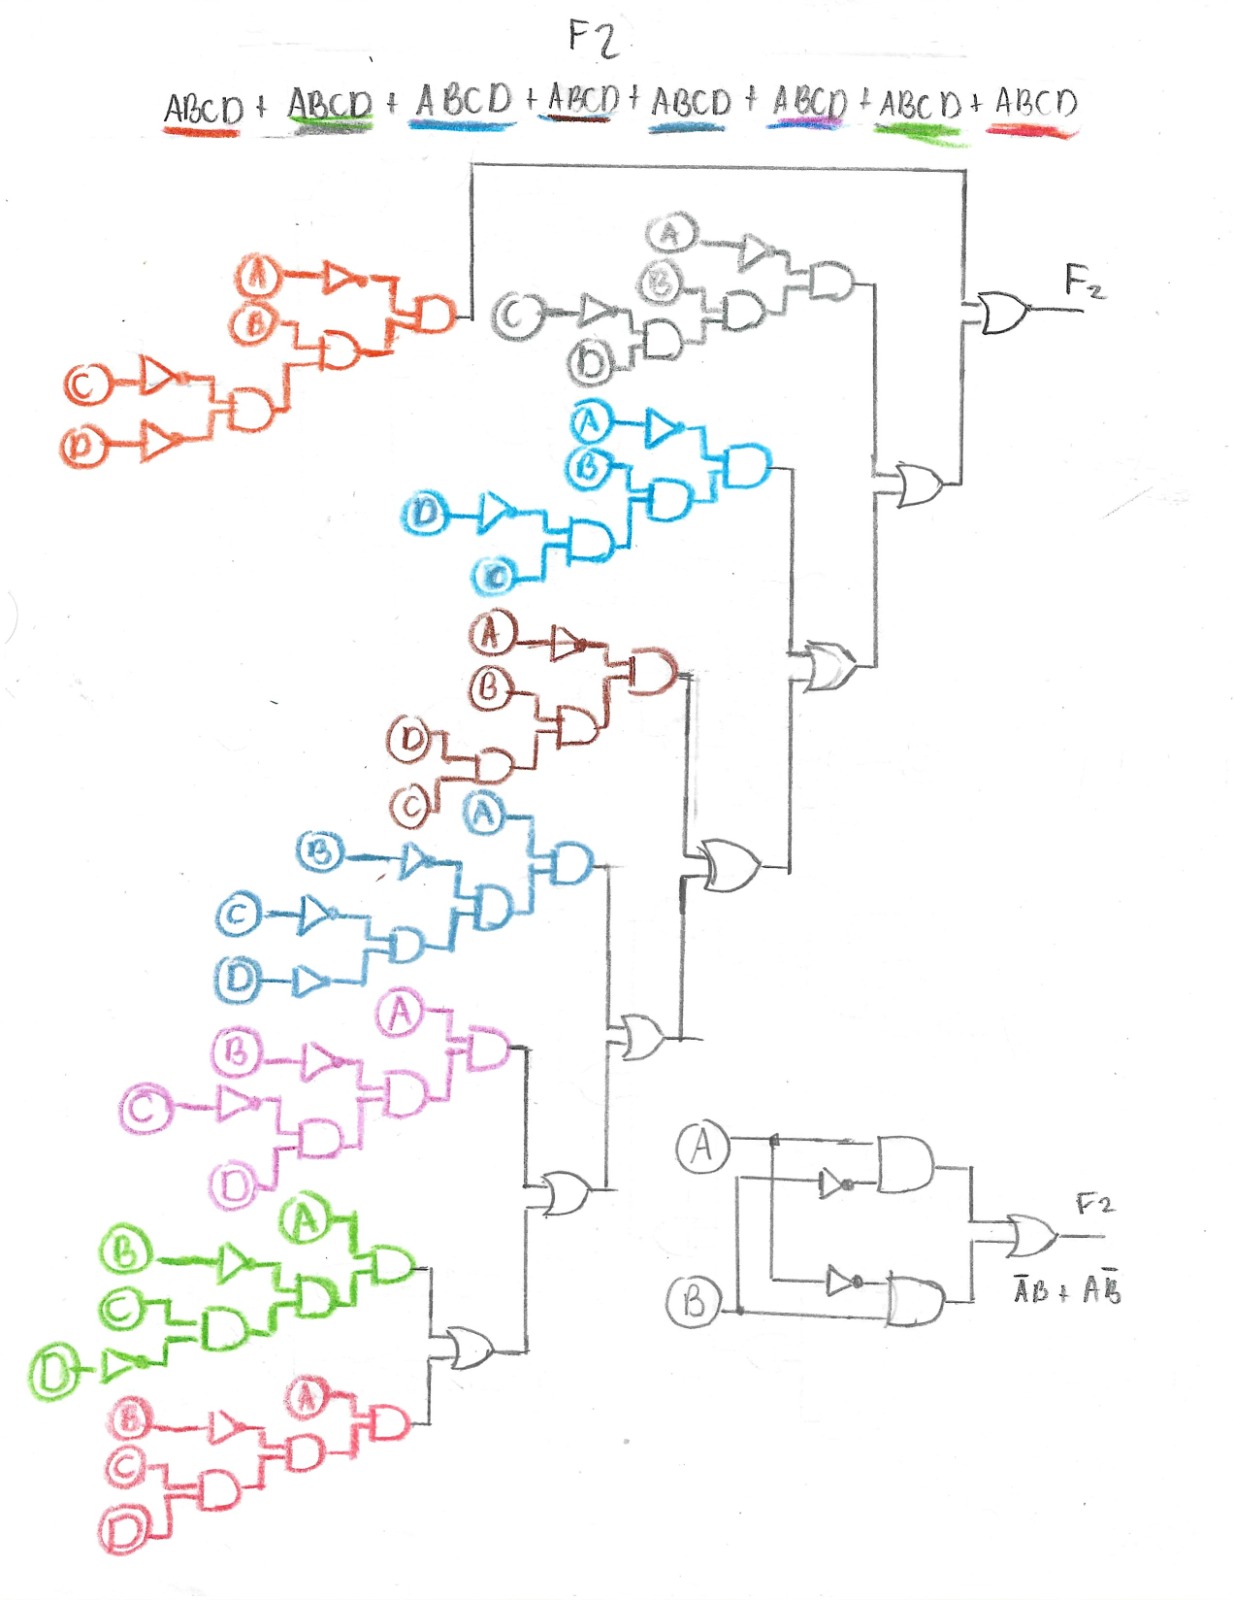 F2
ABCD + ABCD + ABCD + ABCD + ABCD + ABCD + ABCD + ABCD
A
B
C
D
A
B
C
D
F2
A
B
D
C
A
B
D
C
A
B
C
D
A
B
C
D
A
B
C
D
A
B
C
D
A
B
F2
A̅B + AB̅